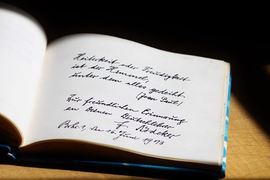 Heiterkeit oder Freudigkeit
ist der Himmel,
unter dem alles gedeiht.
(Jean Paul)
Zur freundlichen Erinnerung
an Deinen Deutschlehrer
F.
den 12. Juni